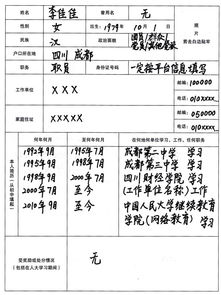 姓名 李佳佳 曾用名 无
性别 女 出生 1979年10月1日
民族 汉 政治面貌 团员/群众/党员/其他党派
户口所在地 四川 成都
职务 职员 身份证号码 一定按平台信息填写
工作单位 XXX 邮编 100000
电话 010xxxx
家庭住址 XXXXX 邮编 050000
电话 010xxxx
本人简历(从初中填起)
何年何月 至何年何月 在何地何单位学习、工作、任何职务
1992年9月 1995年7月 成都第二中学 学习
1995年9月 1998年7月 成都第三中学 学习
1998年9月 2000年7月 四川财经学院 学习
2000年7月 至今 (工作单位名称)工作
2010年9月 至今 中国人民大学继续教育
学院(网络教育) 学习
受奖励或处分情况
(包括在人大学习期间)
无